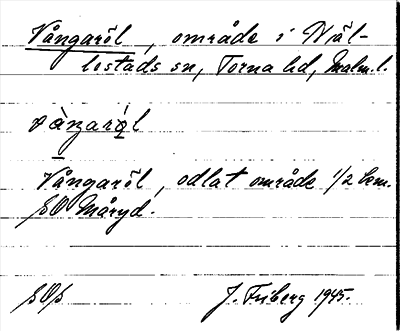 Vångaröl, område i Näl-
lostads sn, Torna hd, Malm. l.
vàŋarǫ̀l
Vångaröl, odlat område 1/2 km.
SO Måryd.
SOs
J. Friberg 1945.